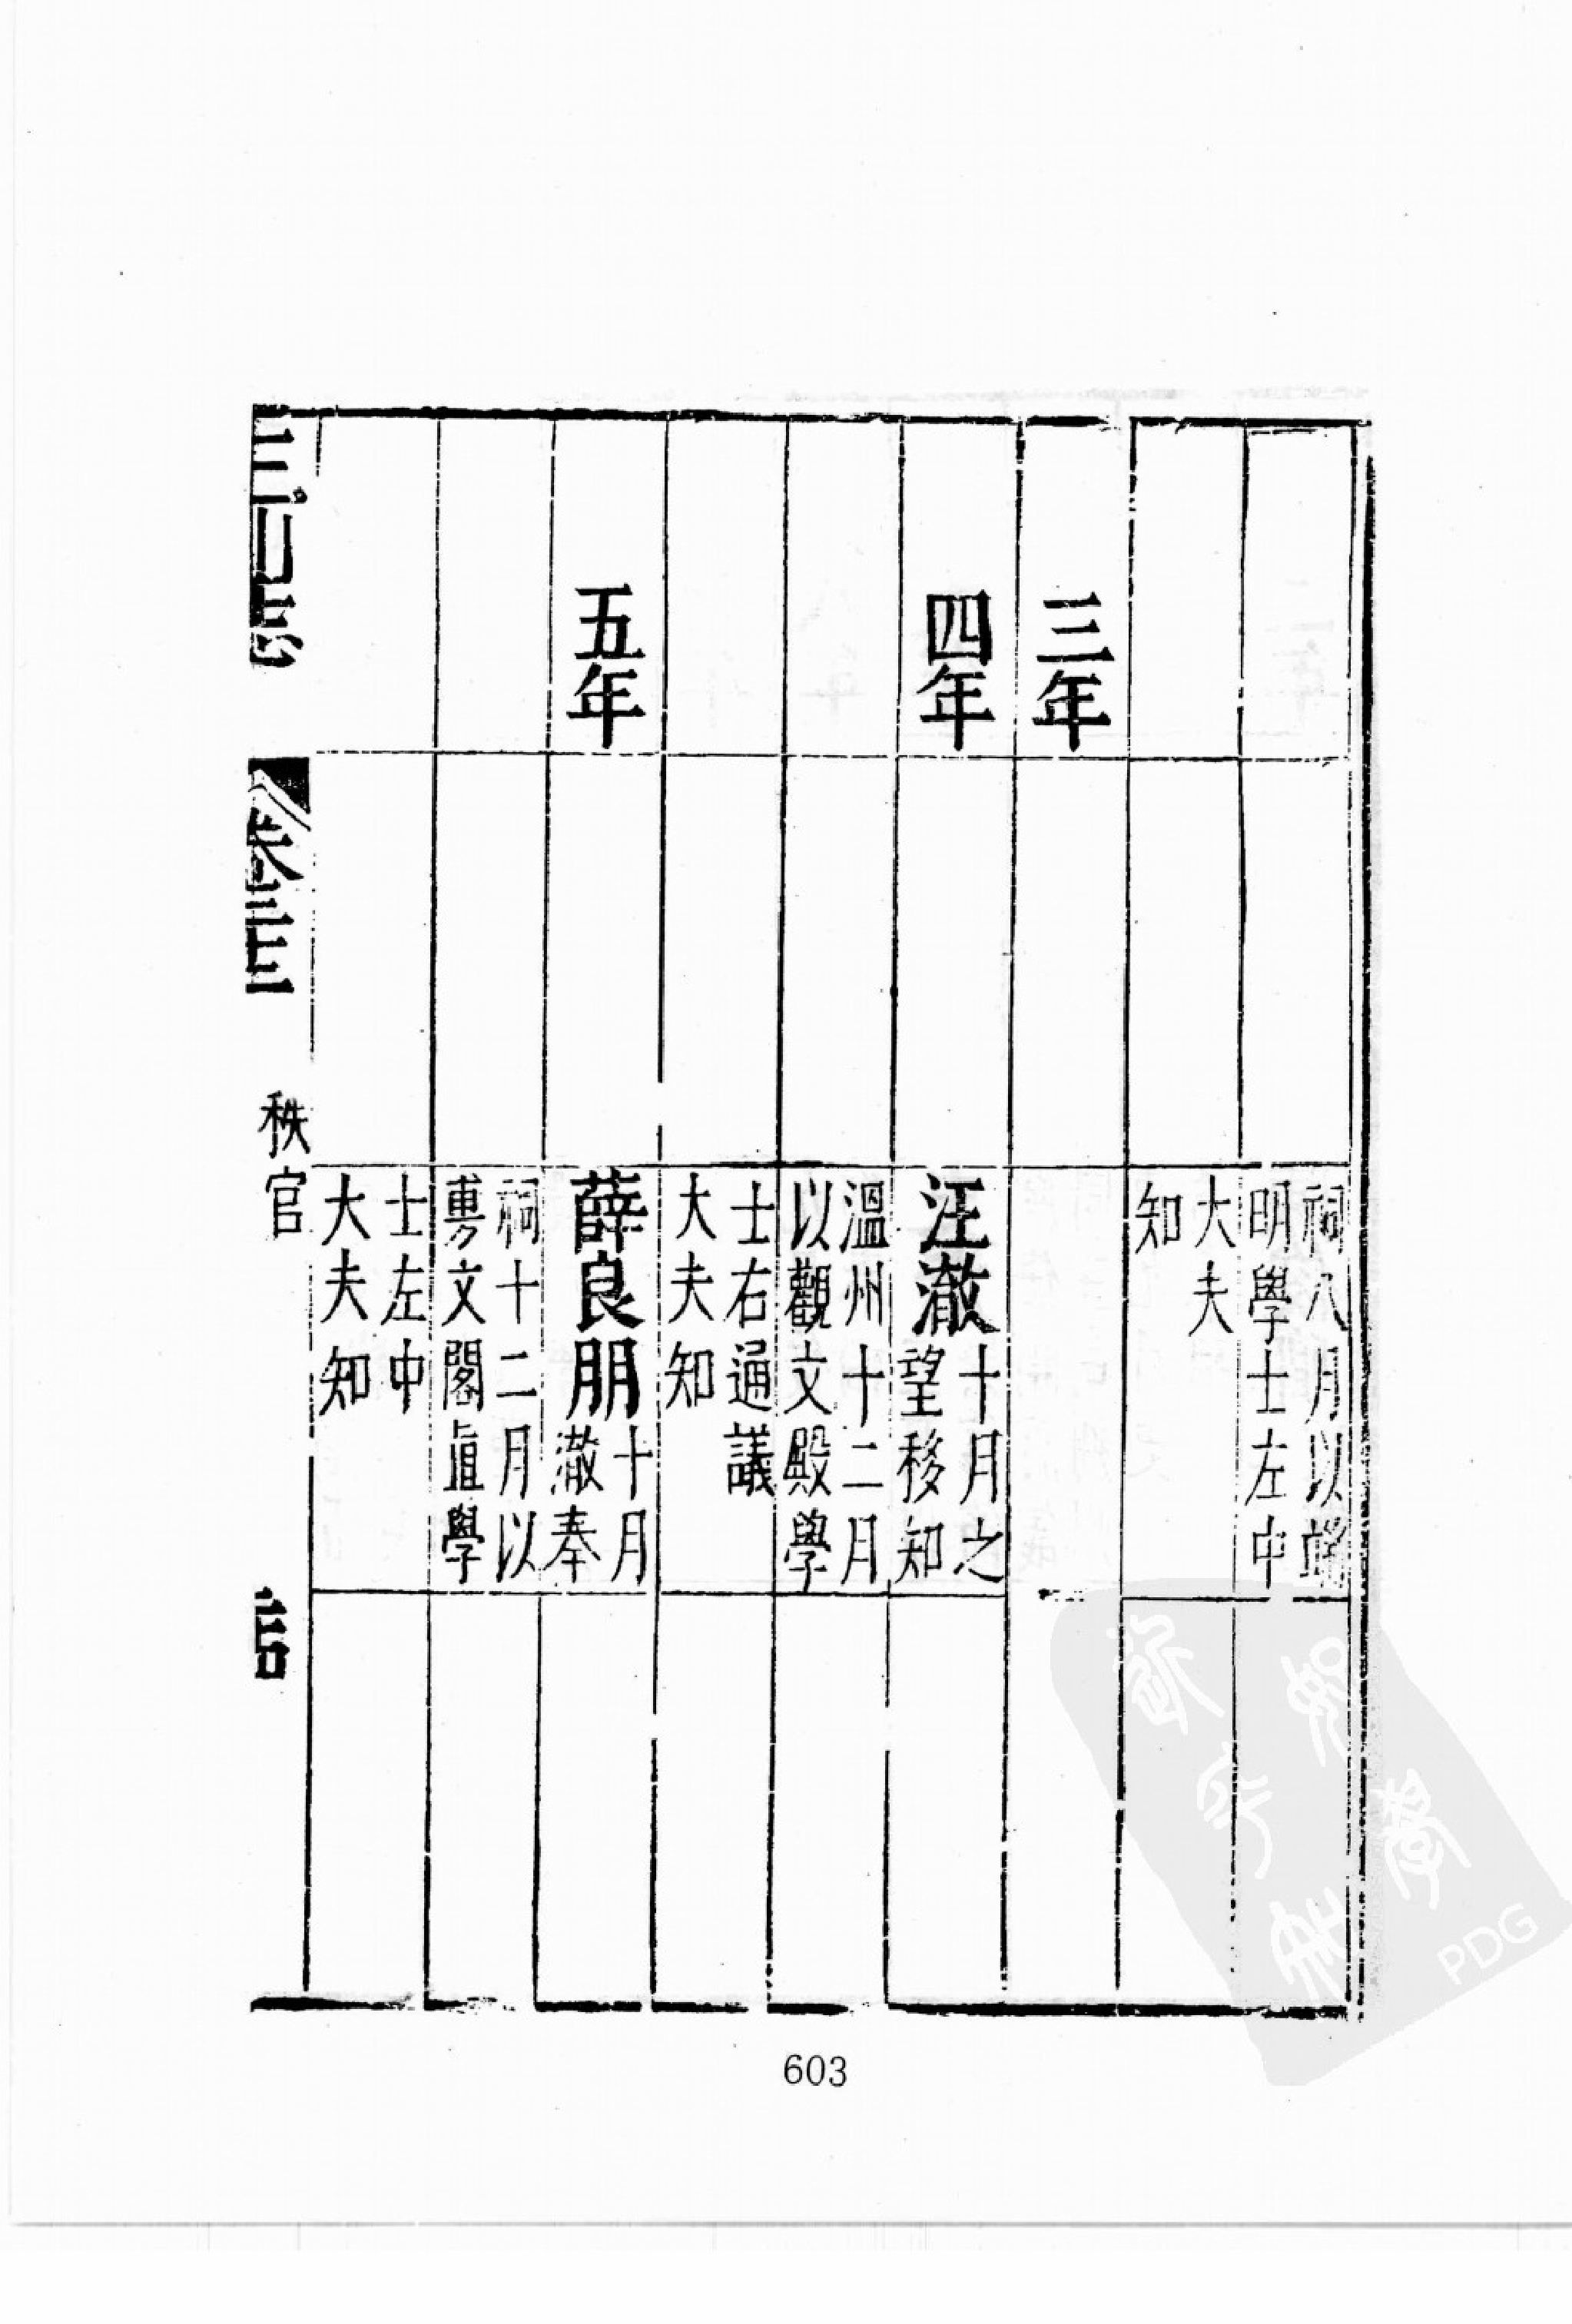 祠八月以端
明學士左中
大夫
知
三年
四年
汪澈十月之
望移知
溫州十二月
以觀文殿學
士右通議
大夫知
五年
薛良朋十月
澈奉
祠十二月以
敷文閣直學
士左中
大夫知
秩官
603
PDG